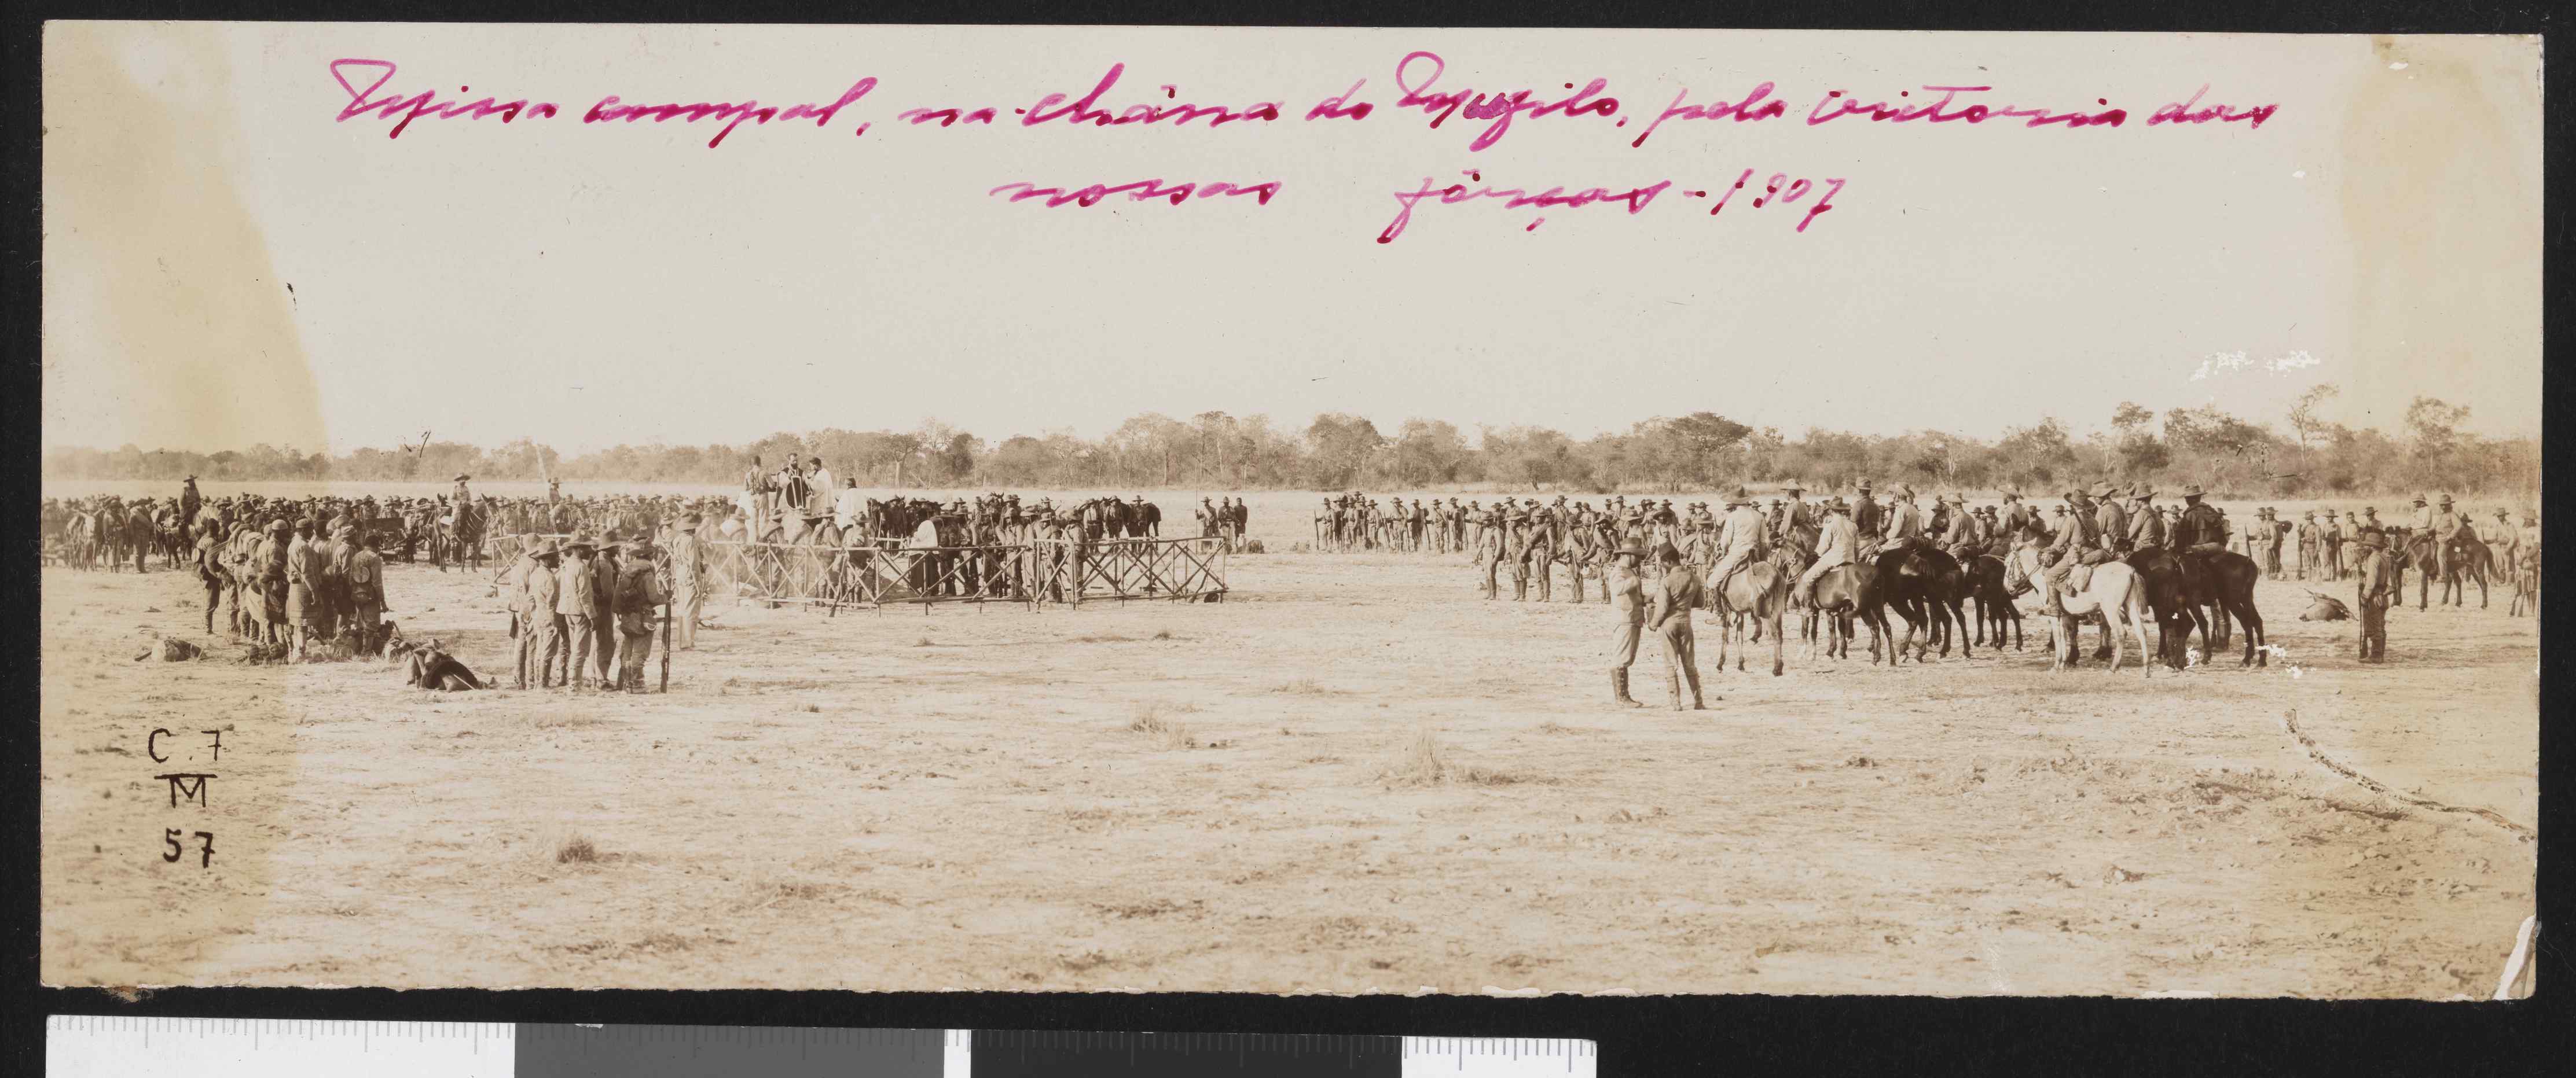 Missa campal, na châna do Mufilo, pela victoria das
nossas fôrças - 1907
C. 7
M
57